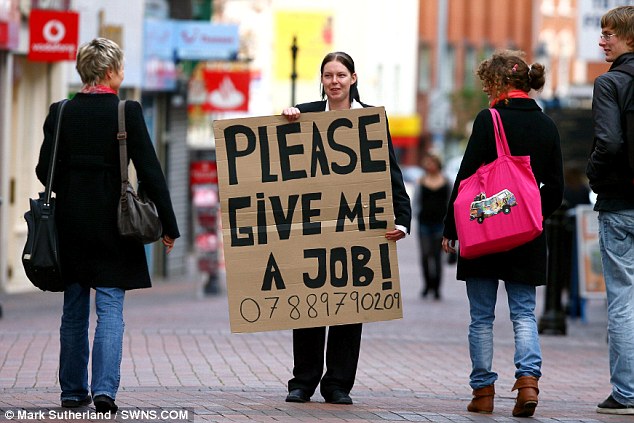 vodafone
PLEASE
GIVE ME
A JOB!
07889790209
© Mark Sutherland / SWNS.COM